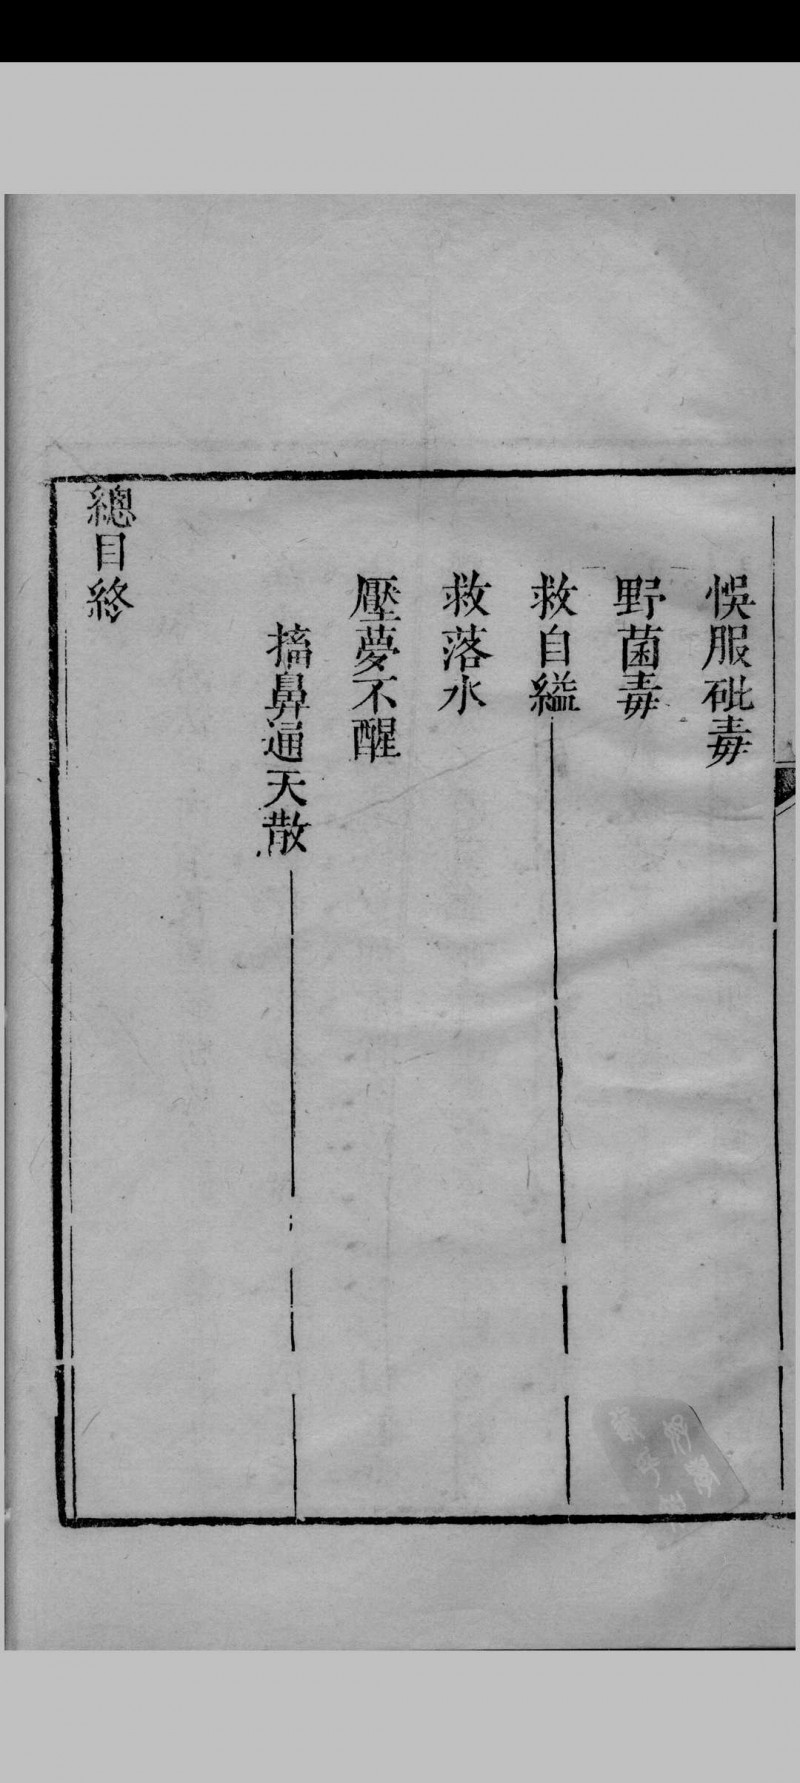 悞服砒毒
野菌毒
救自縊
救落水
壓夢不醒
搐鼻通天散
總目終